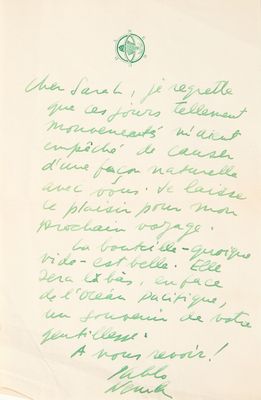 Cher Sarah, je regrette
que ces jours tellement
mouvementé m'aient
empêché de causer
d'une façon naturelle
avec vous. Je laisse
le plaisir pour mon
prochain voyage.
La bouteille - quoique
vide - est belle. Elle
sera là bàs, en face
de l'Océan pacifique,
un souvenir de votre
gentillesse.
A vous revoir!
Pablo
Neruda